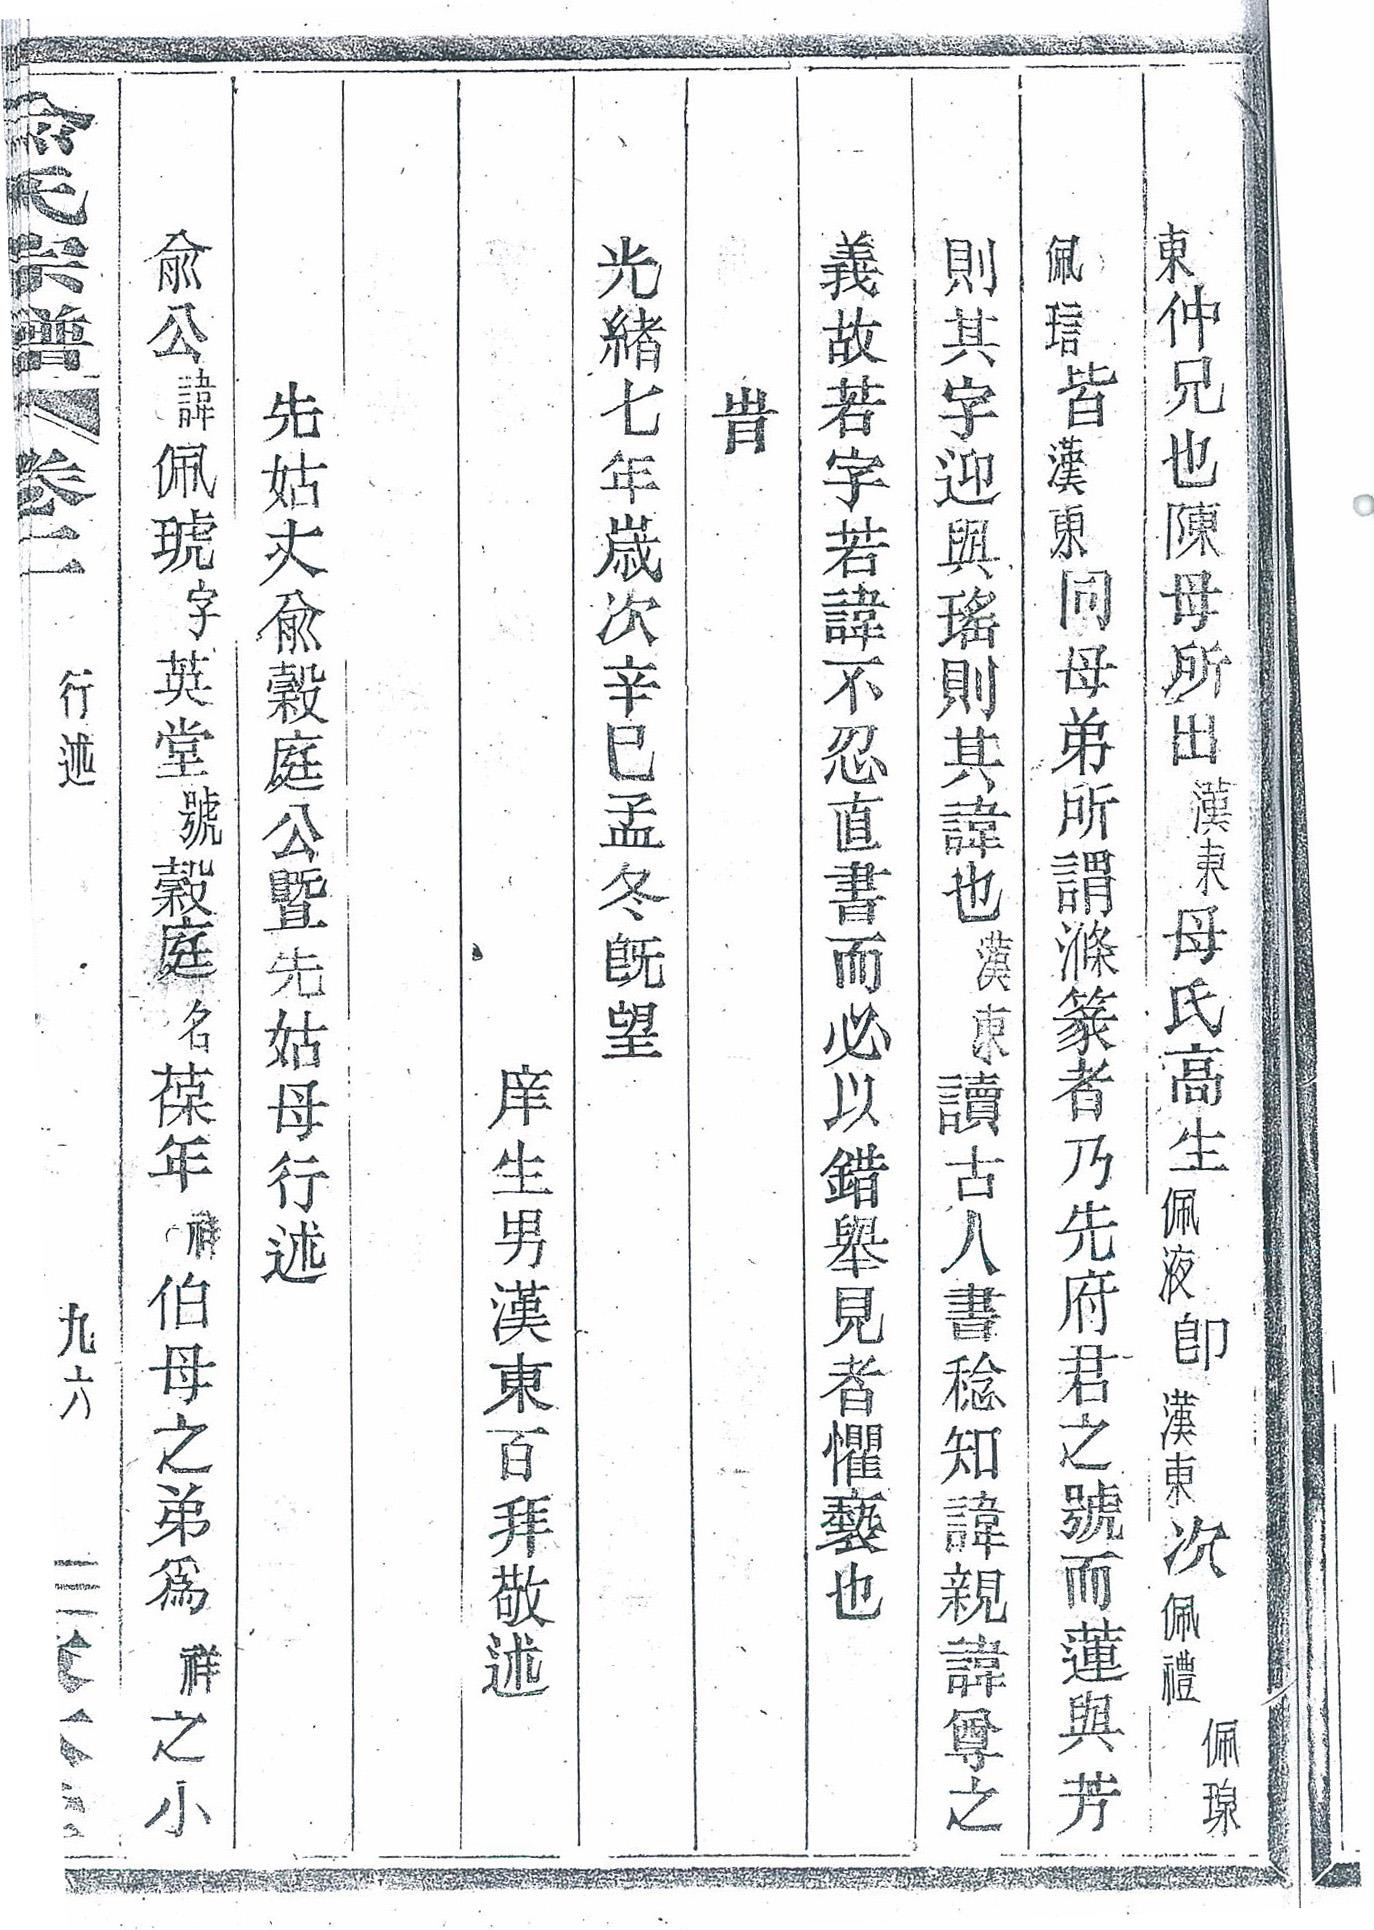 東仲兄也陳母所出漢東母氏高生佩液卽漢東次佩禮佩瑔
佩琂皆漢東同母弟所謂滌篆者乃先府君之號而蓮與芳
則其字迎與瑤則其諱也漢東讀古人書稔知諱親諱尊之
義故若字若諱不忍直書而必以錯舉見者懼褻也
旹
光緒七年歲次辛巳孟冬旣望
庠生男漢東百拜敬述
先姑丈兪穀庭公曁先姑母行述
兪公諱佩琥字英堂號穀庭名葆年祥伯母之弟爲祥之小
兪氏宗譜 卷二 行述 九六